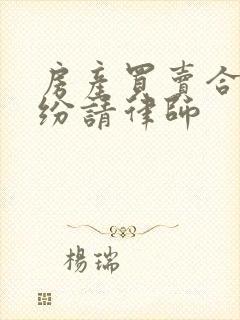 房產買賣合
紛請律師
楊瑞